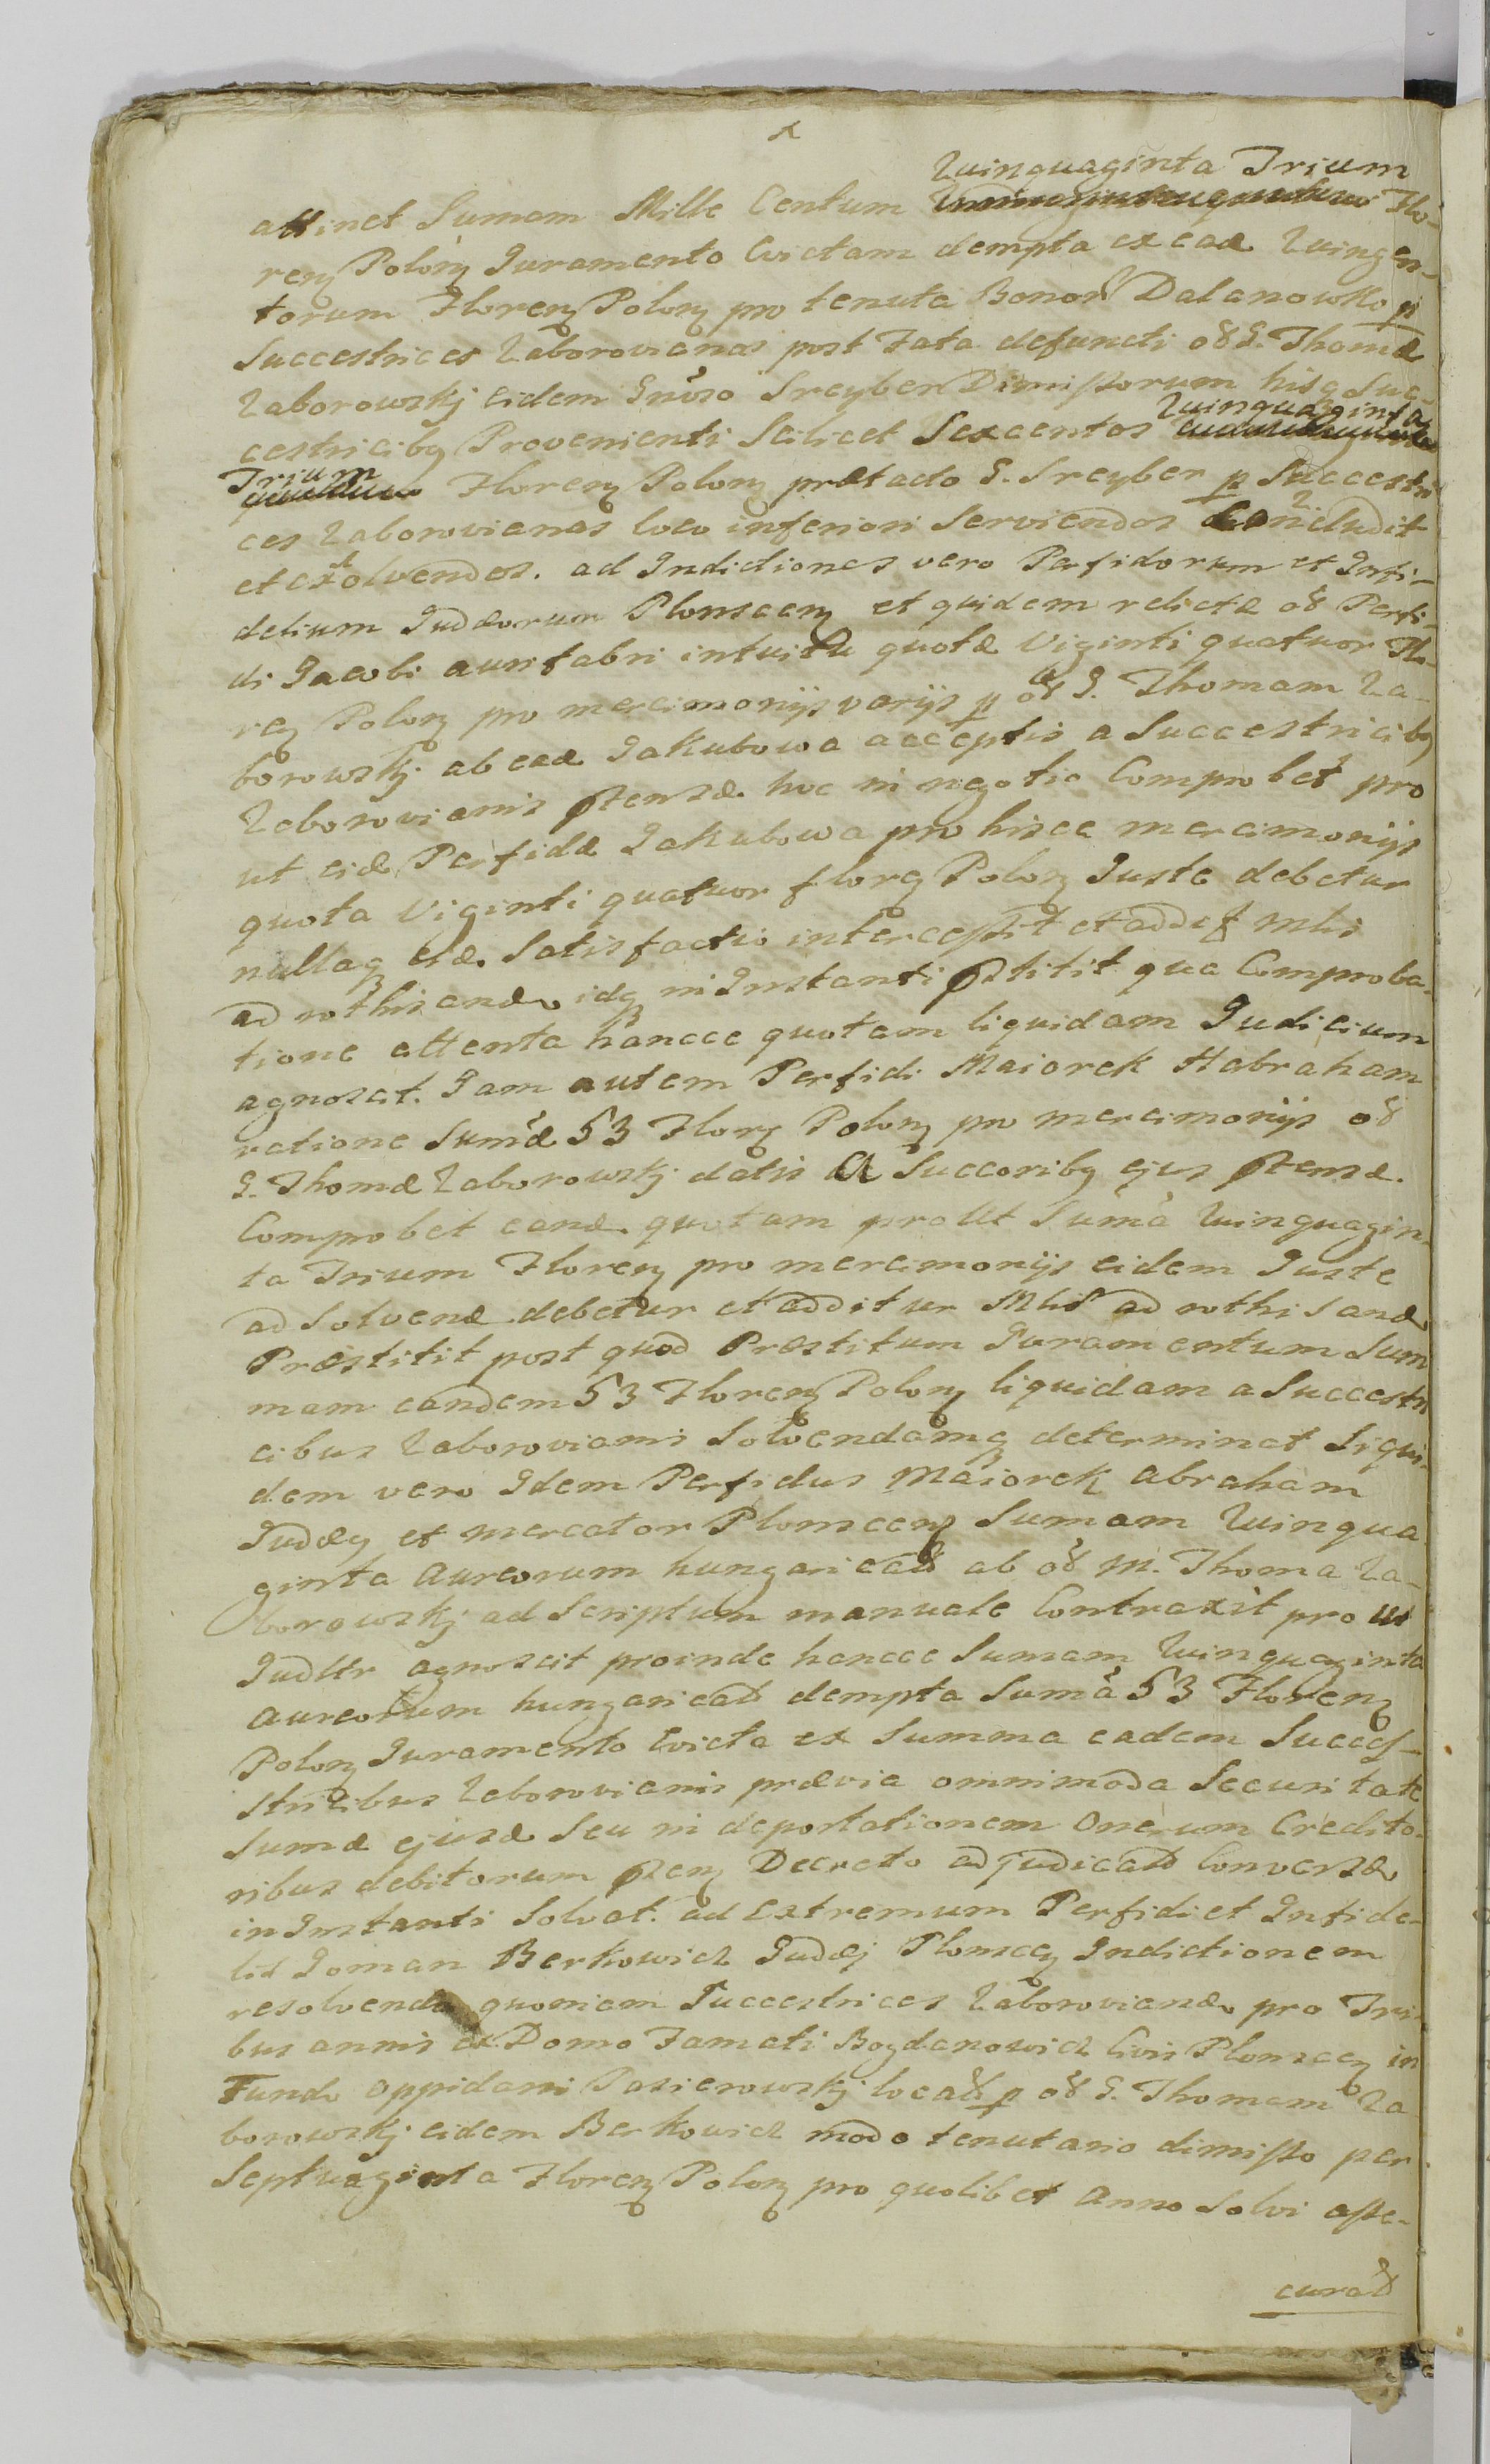 x
Quinquaginta Trium
attinet Sumam Mille Centum Flo-
ren Polon Juramento Evictam dempta ex ead Quingen-
torum Floren Polon pro tenuta Bonor Dalanowko p
Succestrices Zaborovianas post Fata defuncti od G. Thomæ
Zaborowskj eidem Gnroso Sreyber Dimissorum hisq Suc-
Quinquaginta
cestricibq Provenienti Scilicet Sexcentos
Trium
Floren Polon præfacto G. Sreyber p Successtri
ces Zaborovianas loco inferiori Serviendos concludit
et exolvendos. ad Indictiones vero Perfidorum et Infi-
delium Judæorum Plonscen et quidem relictæ od Perfi-
di Jacobi aurifabri intuitu quotæ Viginti quatuor Flo-
ren Polon pro mercimonijs varijs p od G. Thomam Za-
borowskj ab ead Jakubowa acceptis a Succestricibq
Zaborovianis ptensæ hoc in negotio Comprobet pro
ut eid Perfidæ Jakubowa pro hisce mercimonijs
quota Viginti quatuor floren Polon Juste debetur
nullaq eid. Satisfactio intercessit et additr Mlis
ad rothisand idq in Instanti pstitit qua Comproba-
tione attenta hancce quotam liquidam Judicium
agnoscit. Jam autem Perfidi Maiorek Habraham
ratione Sumæ 53 Floren Polon pro mercimonijs od
G. Thomæ Zaborowskj datis a Succoribq ejus ptensæ.
Comprobet eand. quotam proUt Suma Quinquagin-
ta Trium Floren pro mercimonijs eidem Juste
ad Solvend debetur et additur Mlis ad rothisand
Præstitit post quod Præstitum Juramentum Sum
mam eandem 53 Floren Polon liquidam a Succestri
cibus Zaborovianis Solvendamq determinat Siqui-
dem vero Idem Perfidus Maiorek Abraham
Judæq et Mercator Plonscen Sumam Quinqua
ginta Aureorum hungarical ab od M. Thoma Za-
borowskj ad Scriptum manuale Contraxit pro ut
Judltr agnoscit proinde hancce Sumam Quinquaginta
Aureorum hungarical dempta Suma 53 Floren
Polon Juramento Evicta ex Summa eadem Succes-
stricibus Zaborovianis prævia omnimoda Securitate
Sumæ ejusd Seu in deportationem Onerum Credito-
ribus debitorum psen Decreto adjudicad Conversæ
in Instanti Solvat. ad Extremum Perfidi et Infide-
lis Joman Berkowicz Judæj Plonscen Indictionem
resolvend quoniam Succestrices Zaborovianæ pro Tri-
bus annis ex Domo Famati Bogdanowicz Civis Plonscen in
Fundo oppidani Pasierowskj locad p od G. Thomam Za
borowskj eidem Berkowicz modo tenutario dimisso per
Septuaginta Floren Polon pro quolibet Anno Solvi asse-
curad